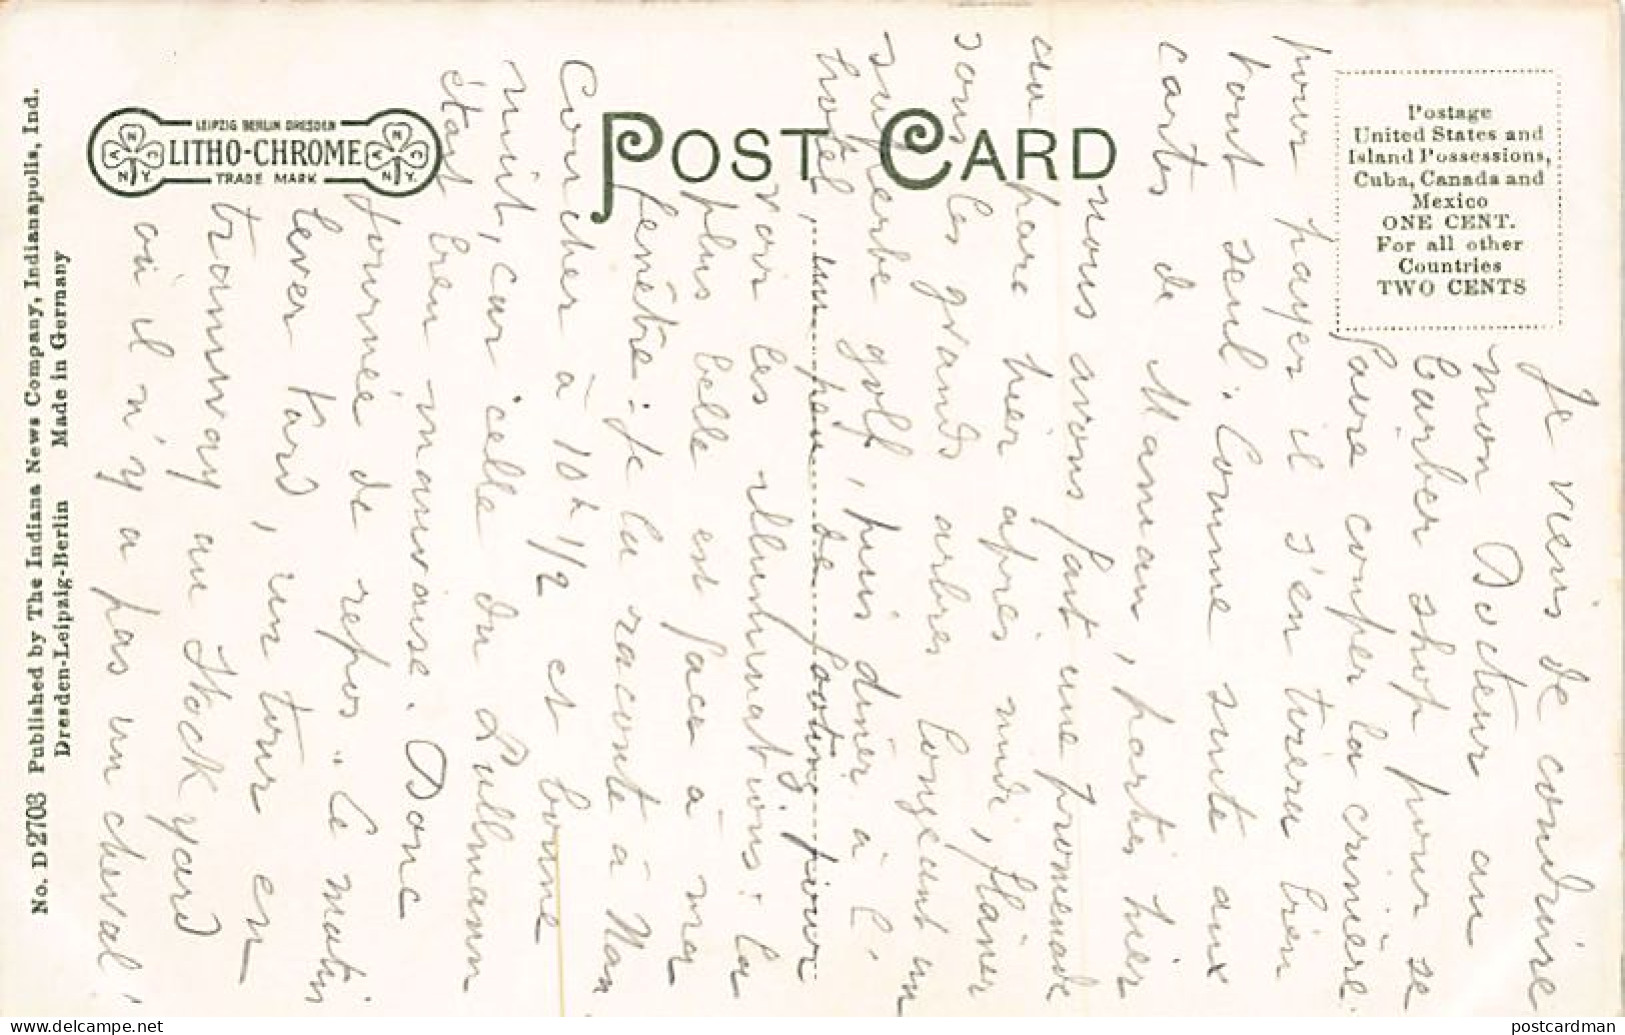 No. D 2703 Published by The Indiana News Company, Indianapolis, Ind.
Dresden-Leipzig-Berlin Made in Germany
LEIPZIG BERLIN DRESDEN
LITHO-CHROME
TRADE MARK
POST CARD
Postage
United States and
Island Possessions,
Cuba, Canada and
Mexico
ONE CENT.
For all other
Countries
TWO CENTS
Je viens de conduire
mon Docteur au
barber shop pour se
faire couper la crinière.
pour payer il s'en tirera bien
tout seul. Comme suite aux
cartes de Maman, parties hier
nous avons fait une promenade
au parc hier après midi, flâner
sous les grands arbres longeant un
superbe golf, puis dîner à l'
hotel, un peu de footing, pour
voir les illuminations: la
plus belle est face à ma
fenêtre: je la raconte à Nan
Coucher à 10h 1/2 et bonne
nuit, car celle du Pullmann
étant bien mauvaise. Donc
journée de repos.. Ce matin
lever tard, un tour en
tramway au Stock yard
où il n'y a pas un cheval!
postcardman